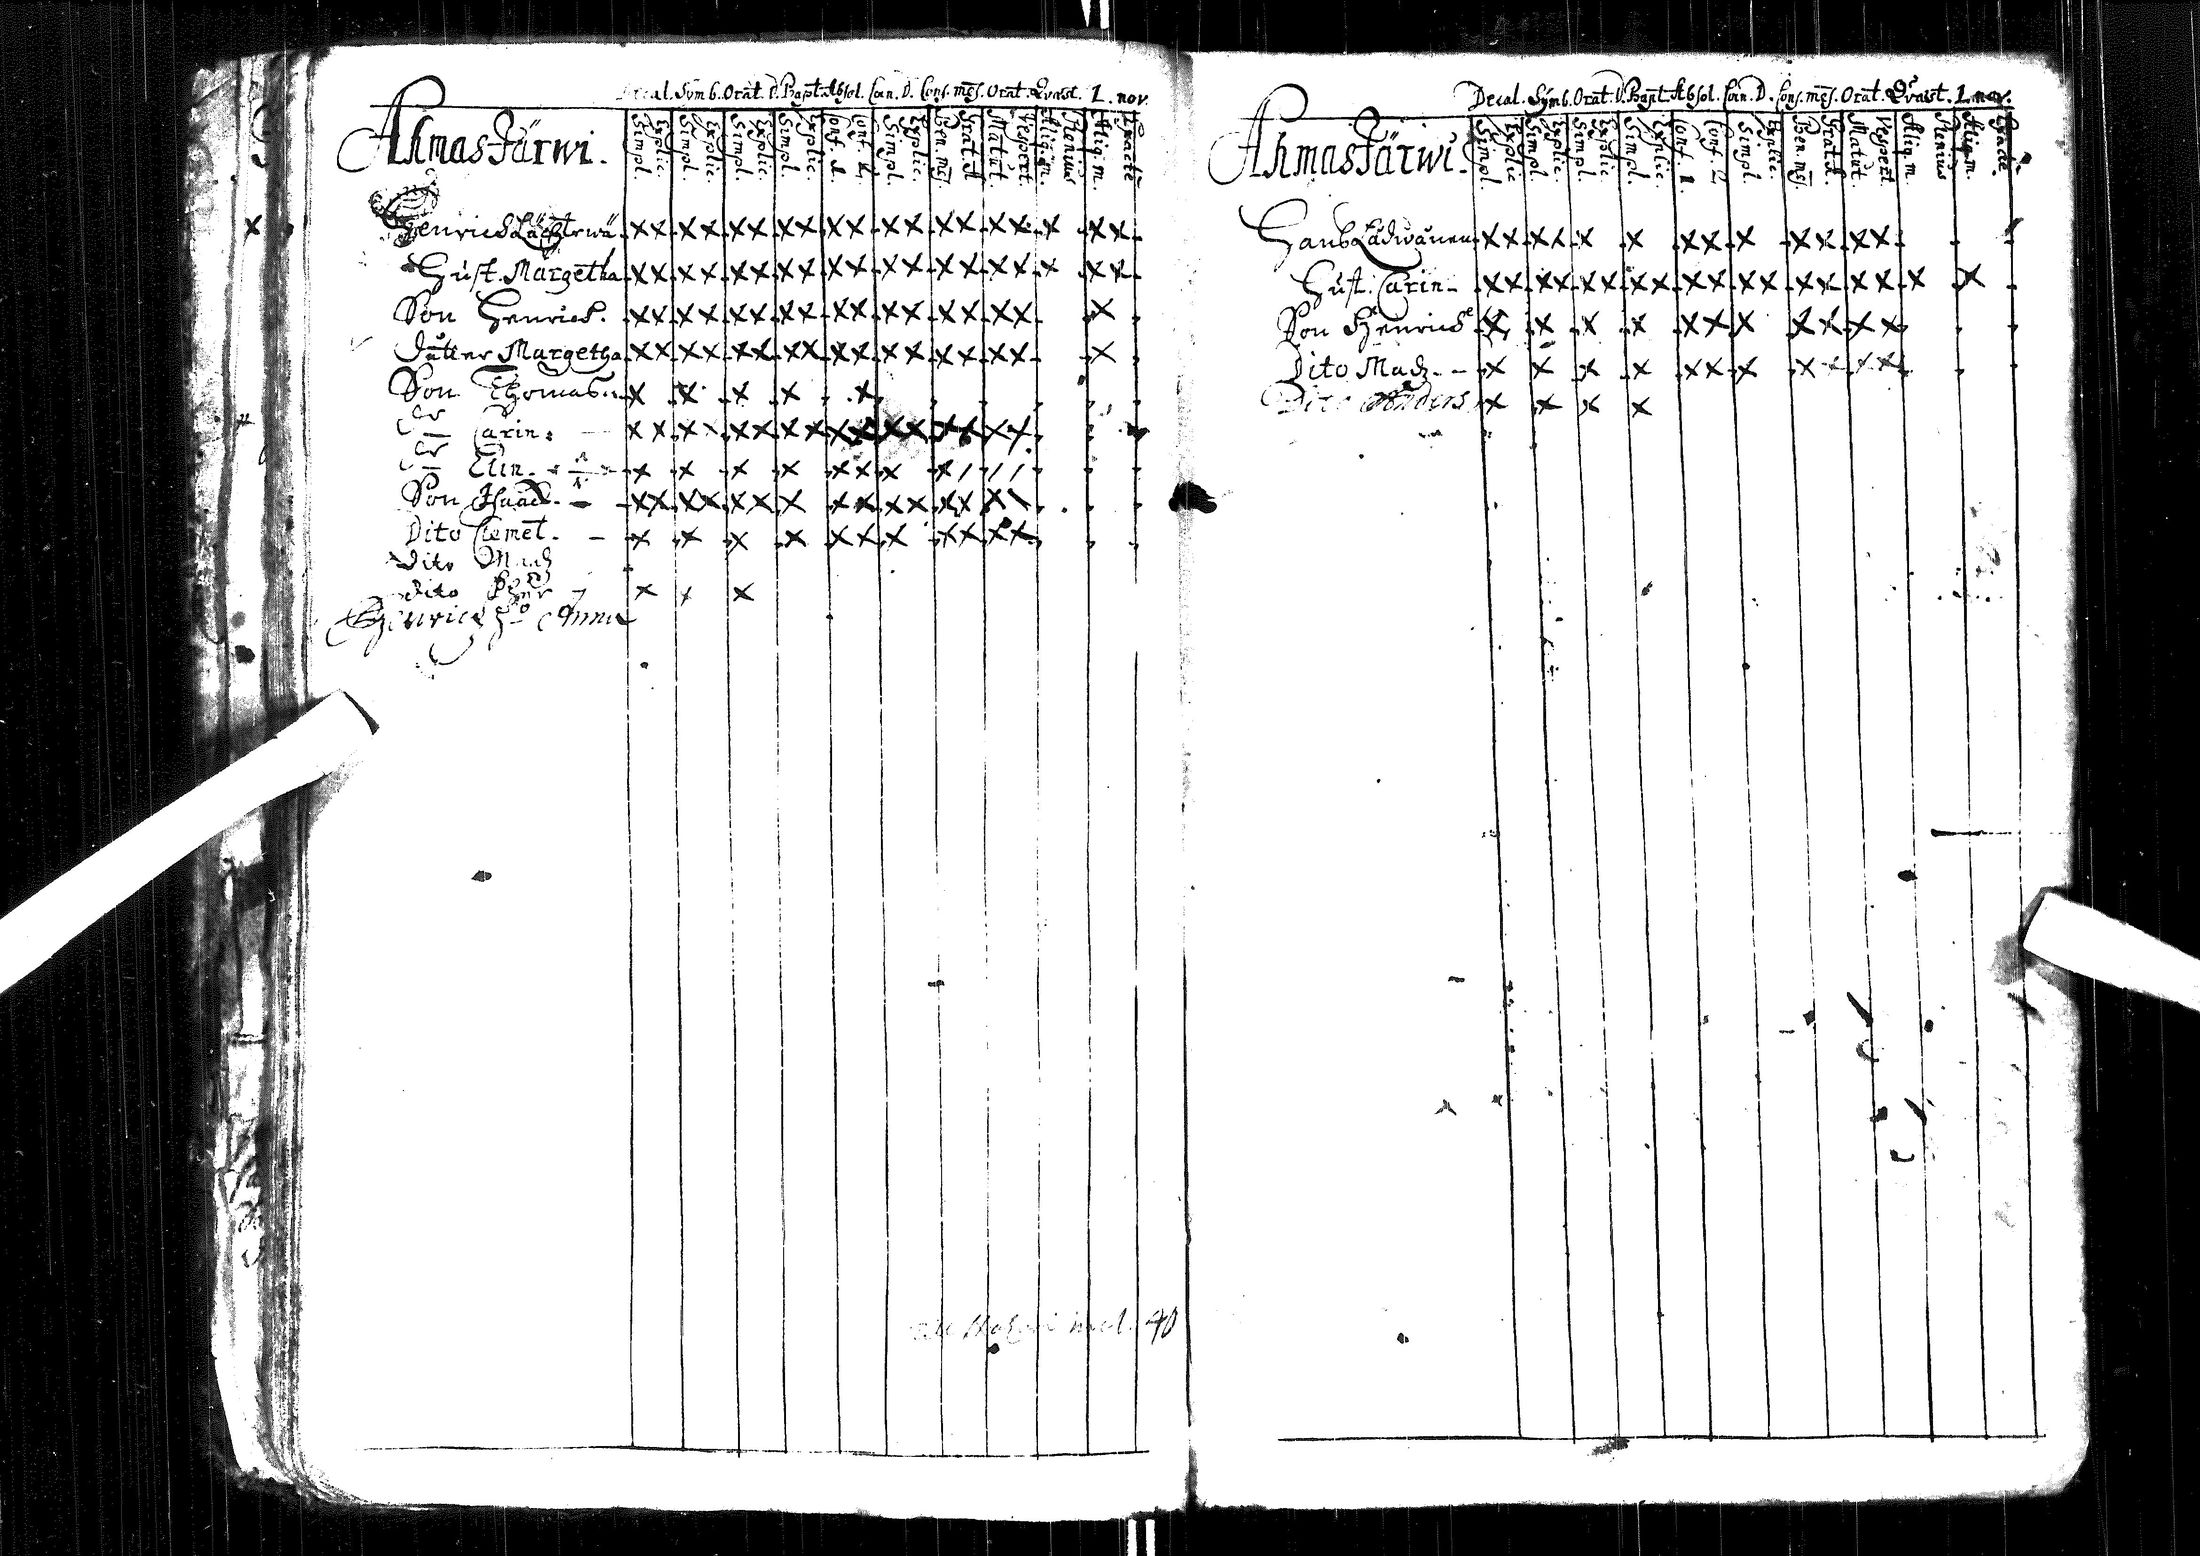 Decal. Symb. Orat. D. Bapt. Absol. Cœn. D. Cons. mēs. Orat. Qvæst. 1. nov.
AhmasJärwi.
Simpl. Explic. Simpl. Explic. Simpl. Explic. Simpl. Explic. Conf. 1. Conf. 2. Simpl. Explic. Ben. mēs Grat. A Matut. Vespert. Aliq. m. Plenius Aliq. m. Exacte
Henrich x x x x x x x x x x x x x x x x x x x
Hust. Margetha x x x x x x x x x x x x x x x x x x x
Son Henrich. x x x x x x x x x x x x x x x x x
Dotter Margetha x x x x x x x x x x x x x x x x x
Son Thomas. x x x x x
Dr Carin. x x x x x x x x x x x x x x x x
Dr Elin. x x x x x x x x / / /
Son Isaac. x x x x x x x x x x x x x x \
Dito Clemet. x x x x x x x x x x x
Dito Mach
Dito x x x
Henrich Hu Anna
40
Decal. Symb. Orat. D. Bapt. Absol. Cœn. D. Cons. mēs. Orat. Qvæst. 1. nov.
AhmasJärwi.
Simpl. Explic Simpl. Explic. Simpl. Explic. Simpl. Explic. Conf. 1 Conf. 2 Simpl. Explic. Ben. mēs. Grat. A. Matut. Vespert Aliq. m Plenius Aliq. m. Exacte.
Hans x x x x x x x x x x x x x
Hust. Carin x x x x x x x x x x x x x x x x x x
Son Henrich x x x x x x x x x x x
Dito Mach. x x x x x x x x x x x
Dito Anders x x x x